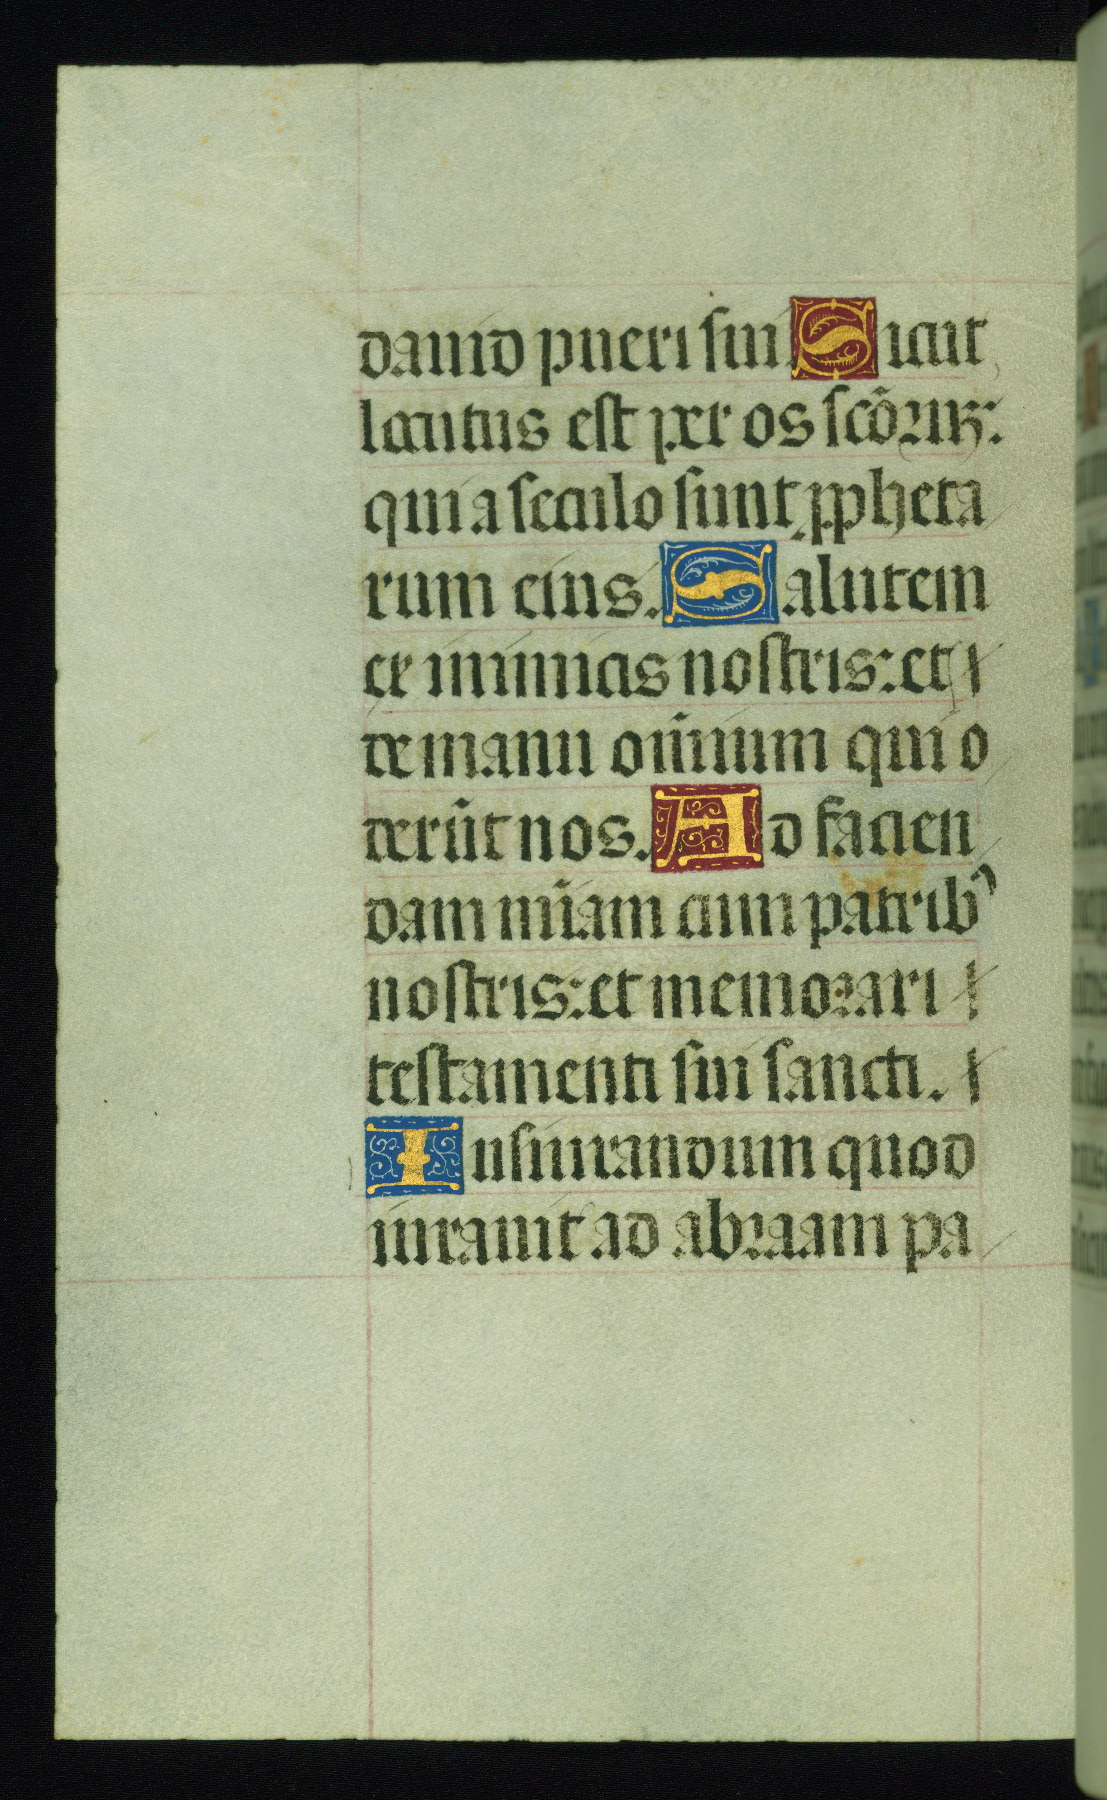 dauid pueri sui. Sicut
locutus est per os scõruꝫ:
qui a seculo sunt ꝓpheta
rum eius. Salutem
ex inimicis nostris: et
de manu oı̄nium qui o
derũt nos. Ad facien
dam mı̄am cum patribꝰ
nostris: et memorari
testamenti sui sancti.
Iusiurandum quod
iurauit ad abraam pa